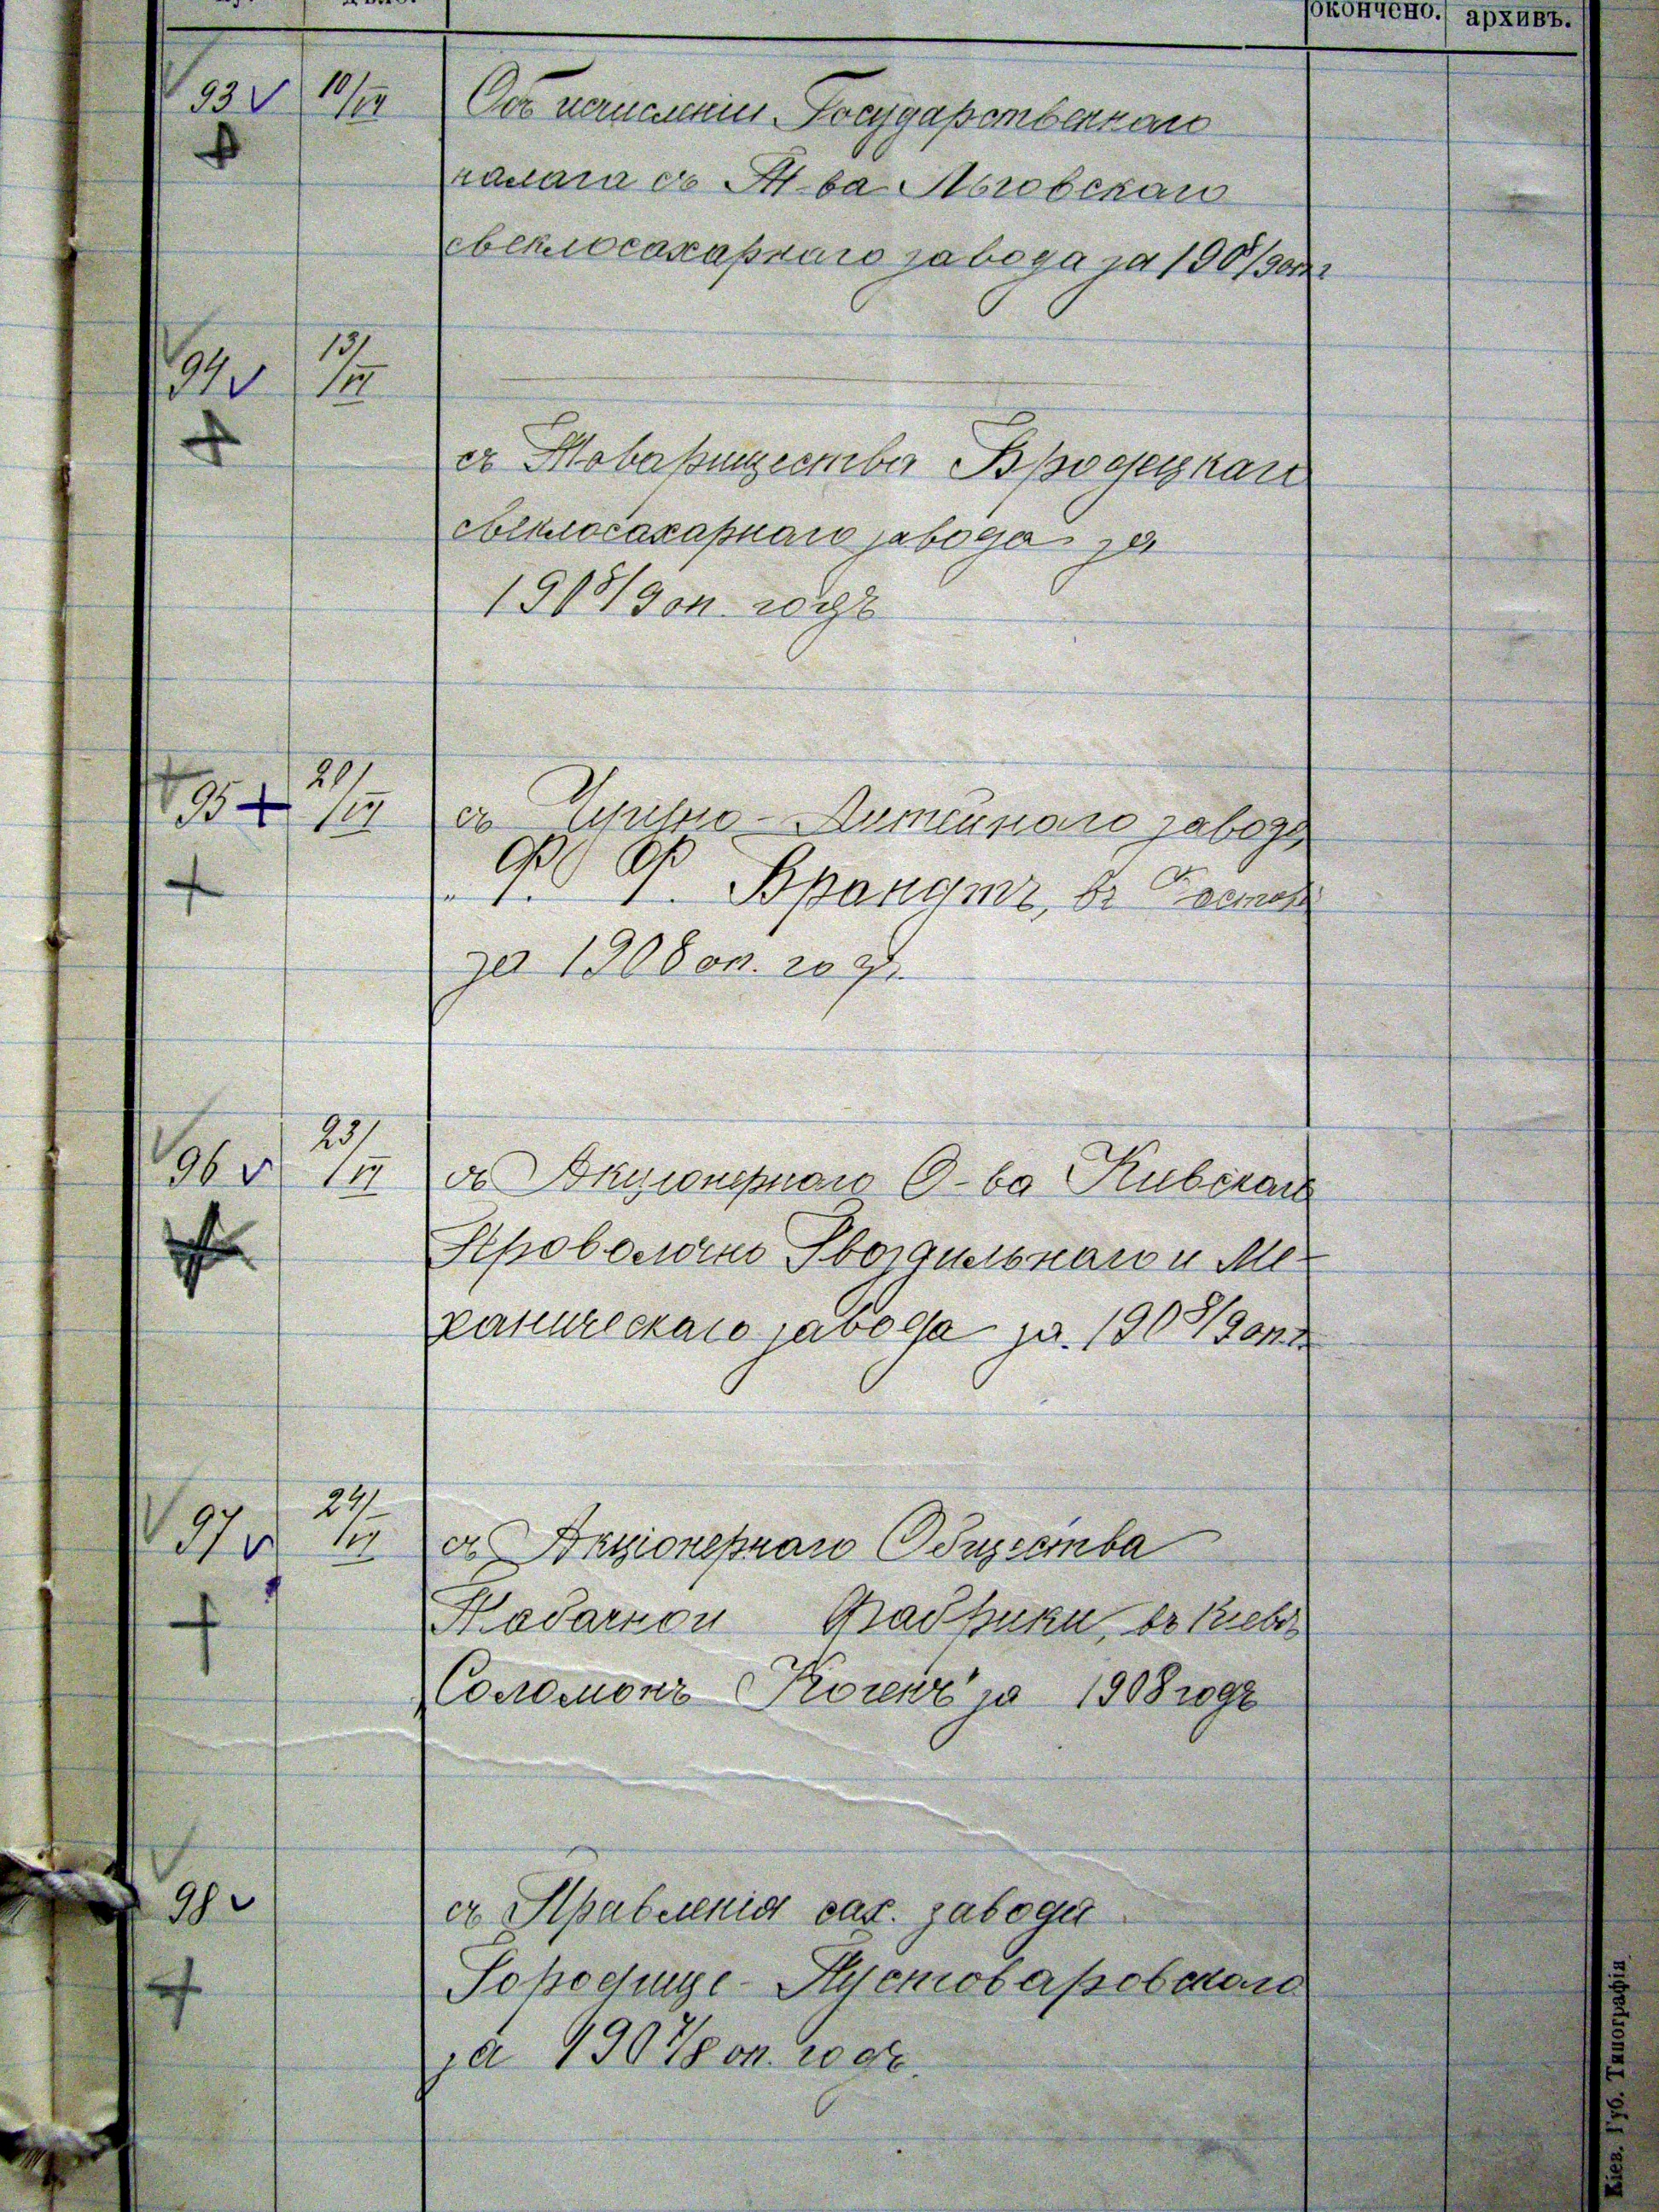 окончено. архивъ.
93 10/VI Объ исчисленіи Государственнаго
налога съ Т-ва Льговскаго
свеклосахарнаго завода за 1908/9 оп. г
94 13/VI
съ Товарищества Бродецкаго
свеклосахарнаго завода за
1908/9 оп. годъ
95 20/VI съ Чугунно-Литейнаго завода
"Ф. Ф. Брандтъ, въ
за 1908 оп. годъ.
96 23/VI съ Акціонернаго О-ва Кіевскаго
Проволочно Гвоздильнаго и Ме-
ханическаго завода за 1908/9 оп. г.
97 24/VI съ Акціонернаго Общества
Табачной Фабрики, въ Кіевѣ
Соломонъ Когенъ" за 1908 годъ
98 съ Правленія сах. завода
Городище-Пустоваровскаго
за 1907/8 оп. годъ.
Кіев. Губ. Типографія